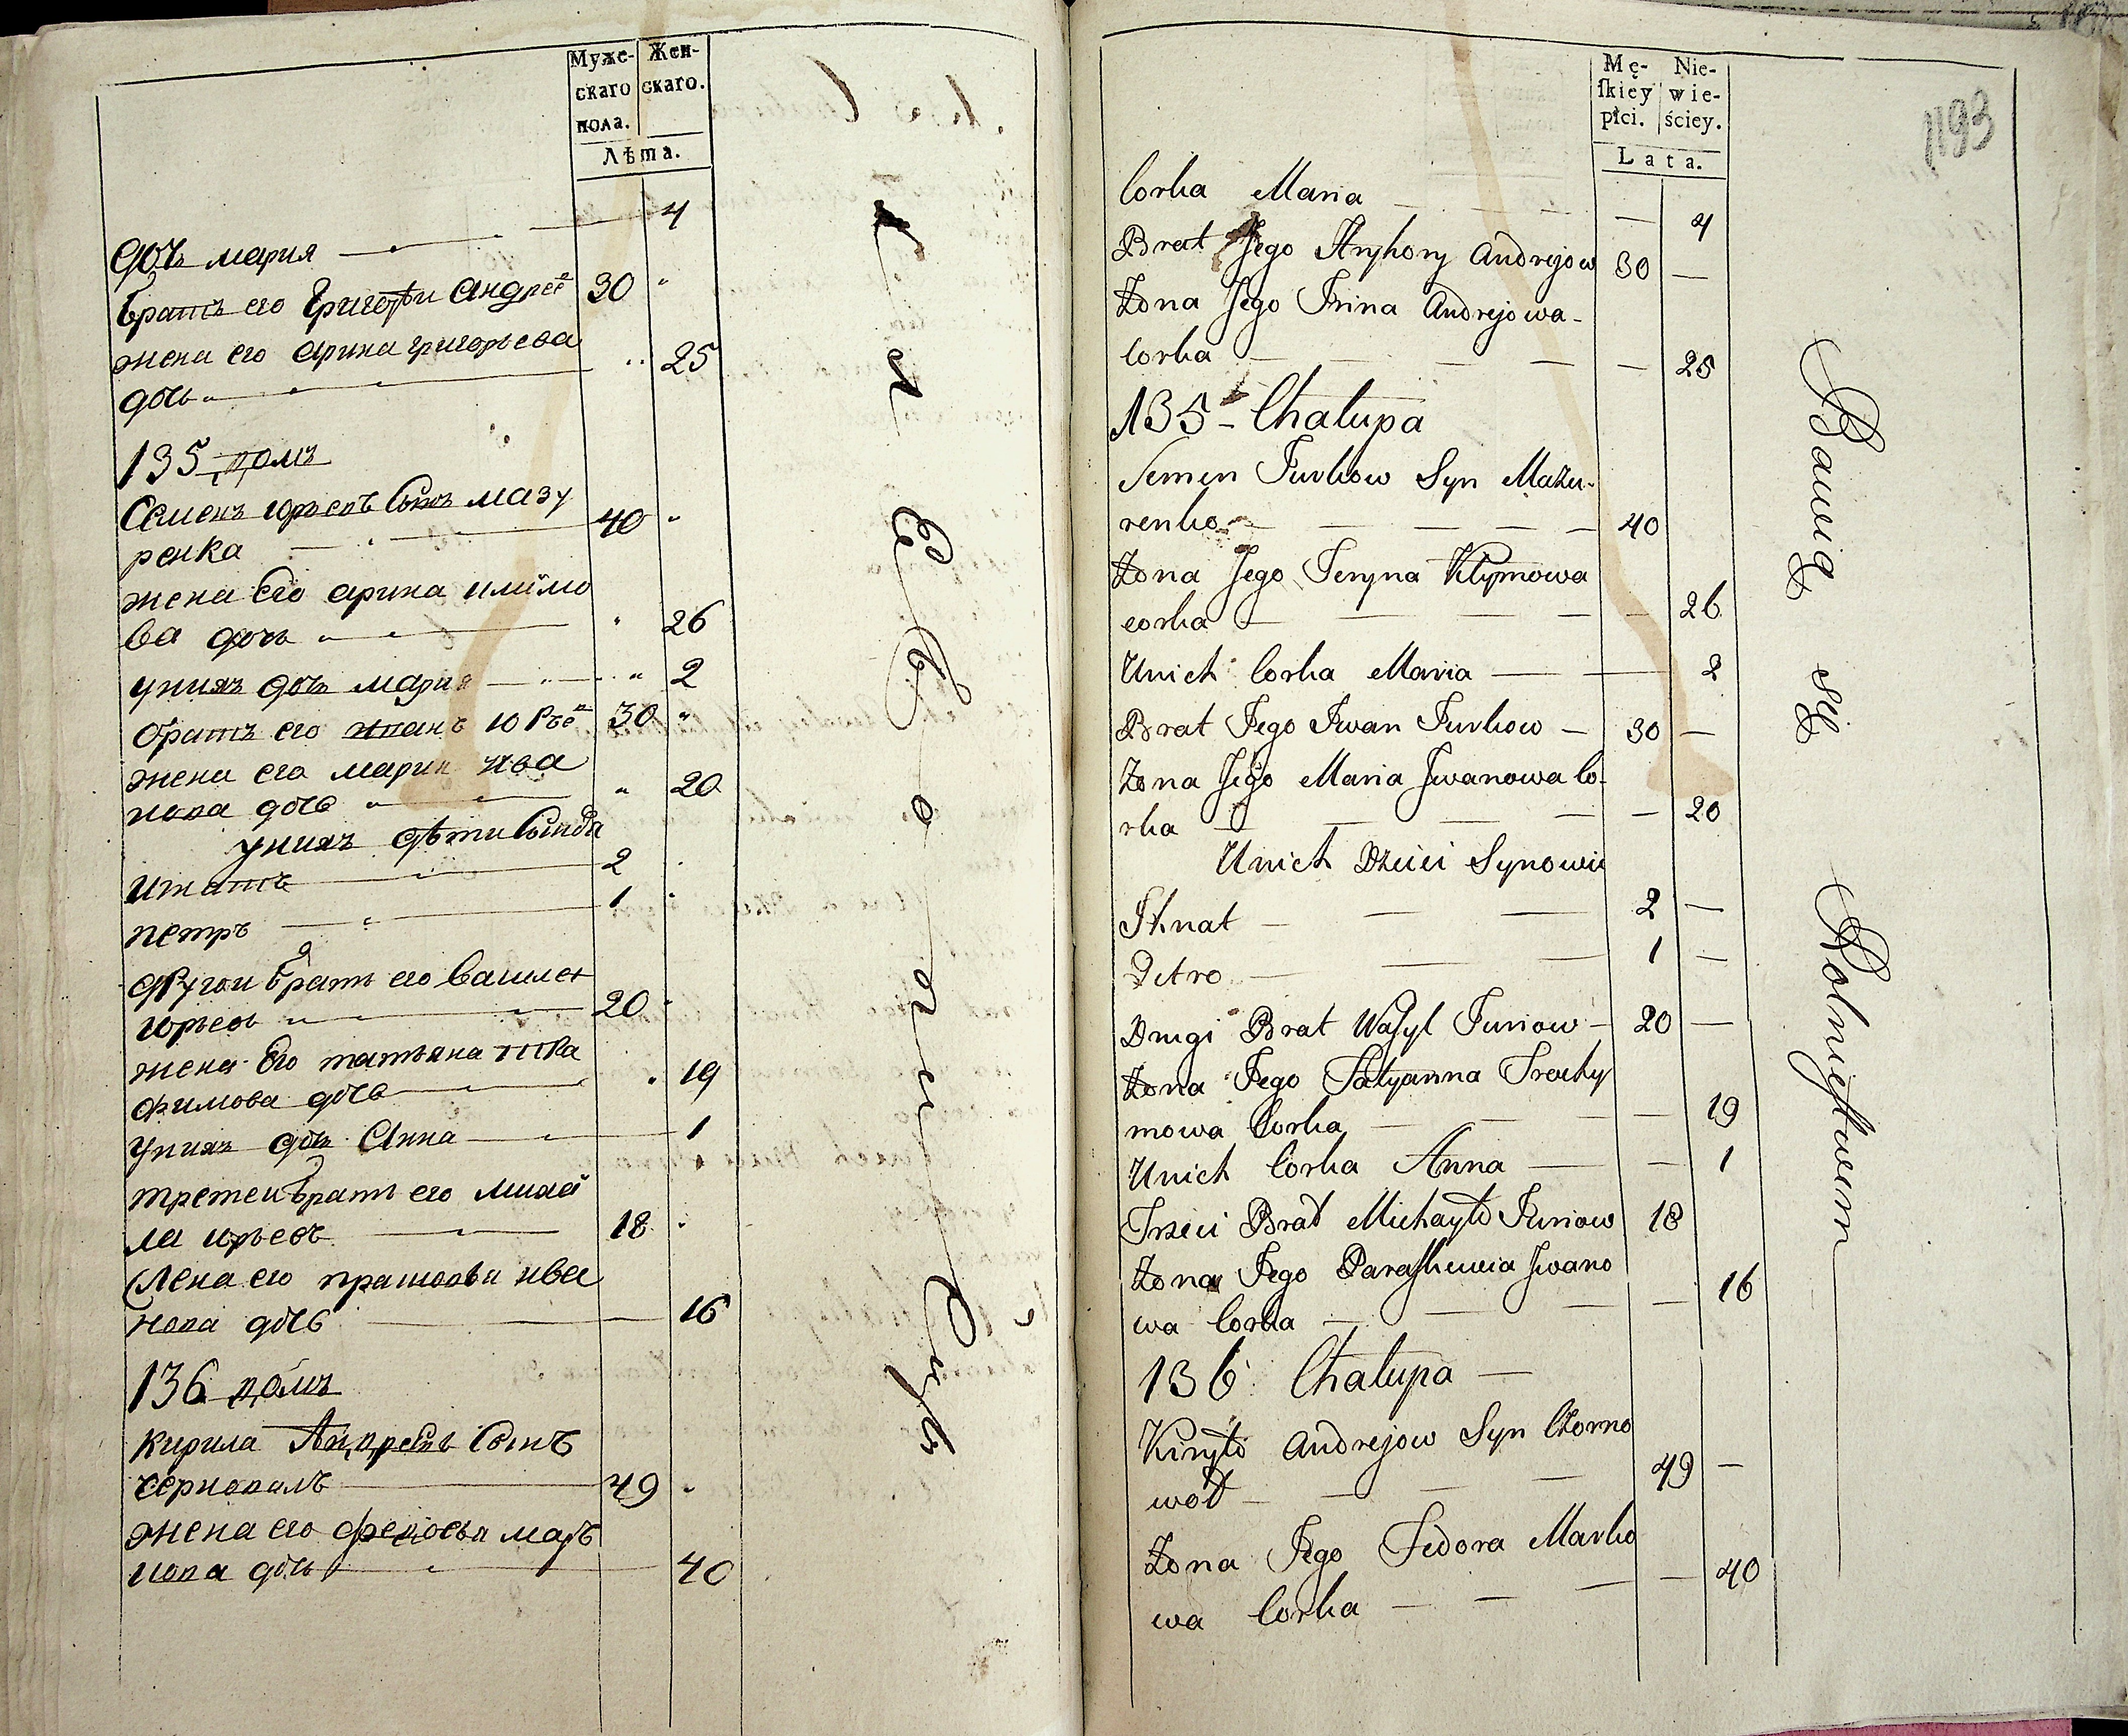 Муже- Жен-
скаго скаго.
пола.
Лѣта.
дочь мария 4
братъ его Григорѣи Андрее 30
жена его арина григорьева
дочь 25
135 домъ
Семенъ юрьевъ сынъ мазу
ренка 40
жена Его арина климо
ва дочь 26
унихъ дочь мария 2
братъ его иванъ юрье 30
жена его мария ива
нова дочь 20
унихъ дѣти сынов
игнатъ 2
петръ 1
другои братъ его василеи
юрьевъ 20
жена Его татьяна тра
фимова дочь 19
унихъ дочь Анна 1
третеи братъ его михаи
ла юрьевъ 18
жена его прасковья ива
нова дочь 16
136 домъ
кирила Андреевъ сынъ
черновалъ 49
жена его федосья мар
кова дочь 40
1193
Mę- Nie-
ſkiey wie-
płci. ściey.
Lata.
Corka Maria 4
Brat Jego Hryhory Andrejow 30
Żona Jego Irina Andrejowa
Corka 25
135 Chałupa
Semen Jurkow Syn Mazu-
renko 40
Żona Jego Jeryna Klymowa
corka 26
Unich Corka Maria 2
Brat Jego Iwan Jurkow 30
Żona Jego Maria Iwanowa Co-
rka 20
Unich Dzieci Synowie
Ihnat 2
Petro 1
Drugi Brat Waſyl Juriow 20
Żona Jego Tatyanna Trochy
mowa Corka 19
Unich Corka Anna 1
Trzeci Brat Michayło Juriow 18
Żona Jego Paraſkewia Iwano
wa Corka 16
136 Chałupa
Kiryło Andrejow Syn Czorno
woł 49
Żona Jego Fedora Marko
wa Corka 40
Bawią się Rolnictwem